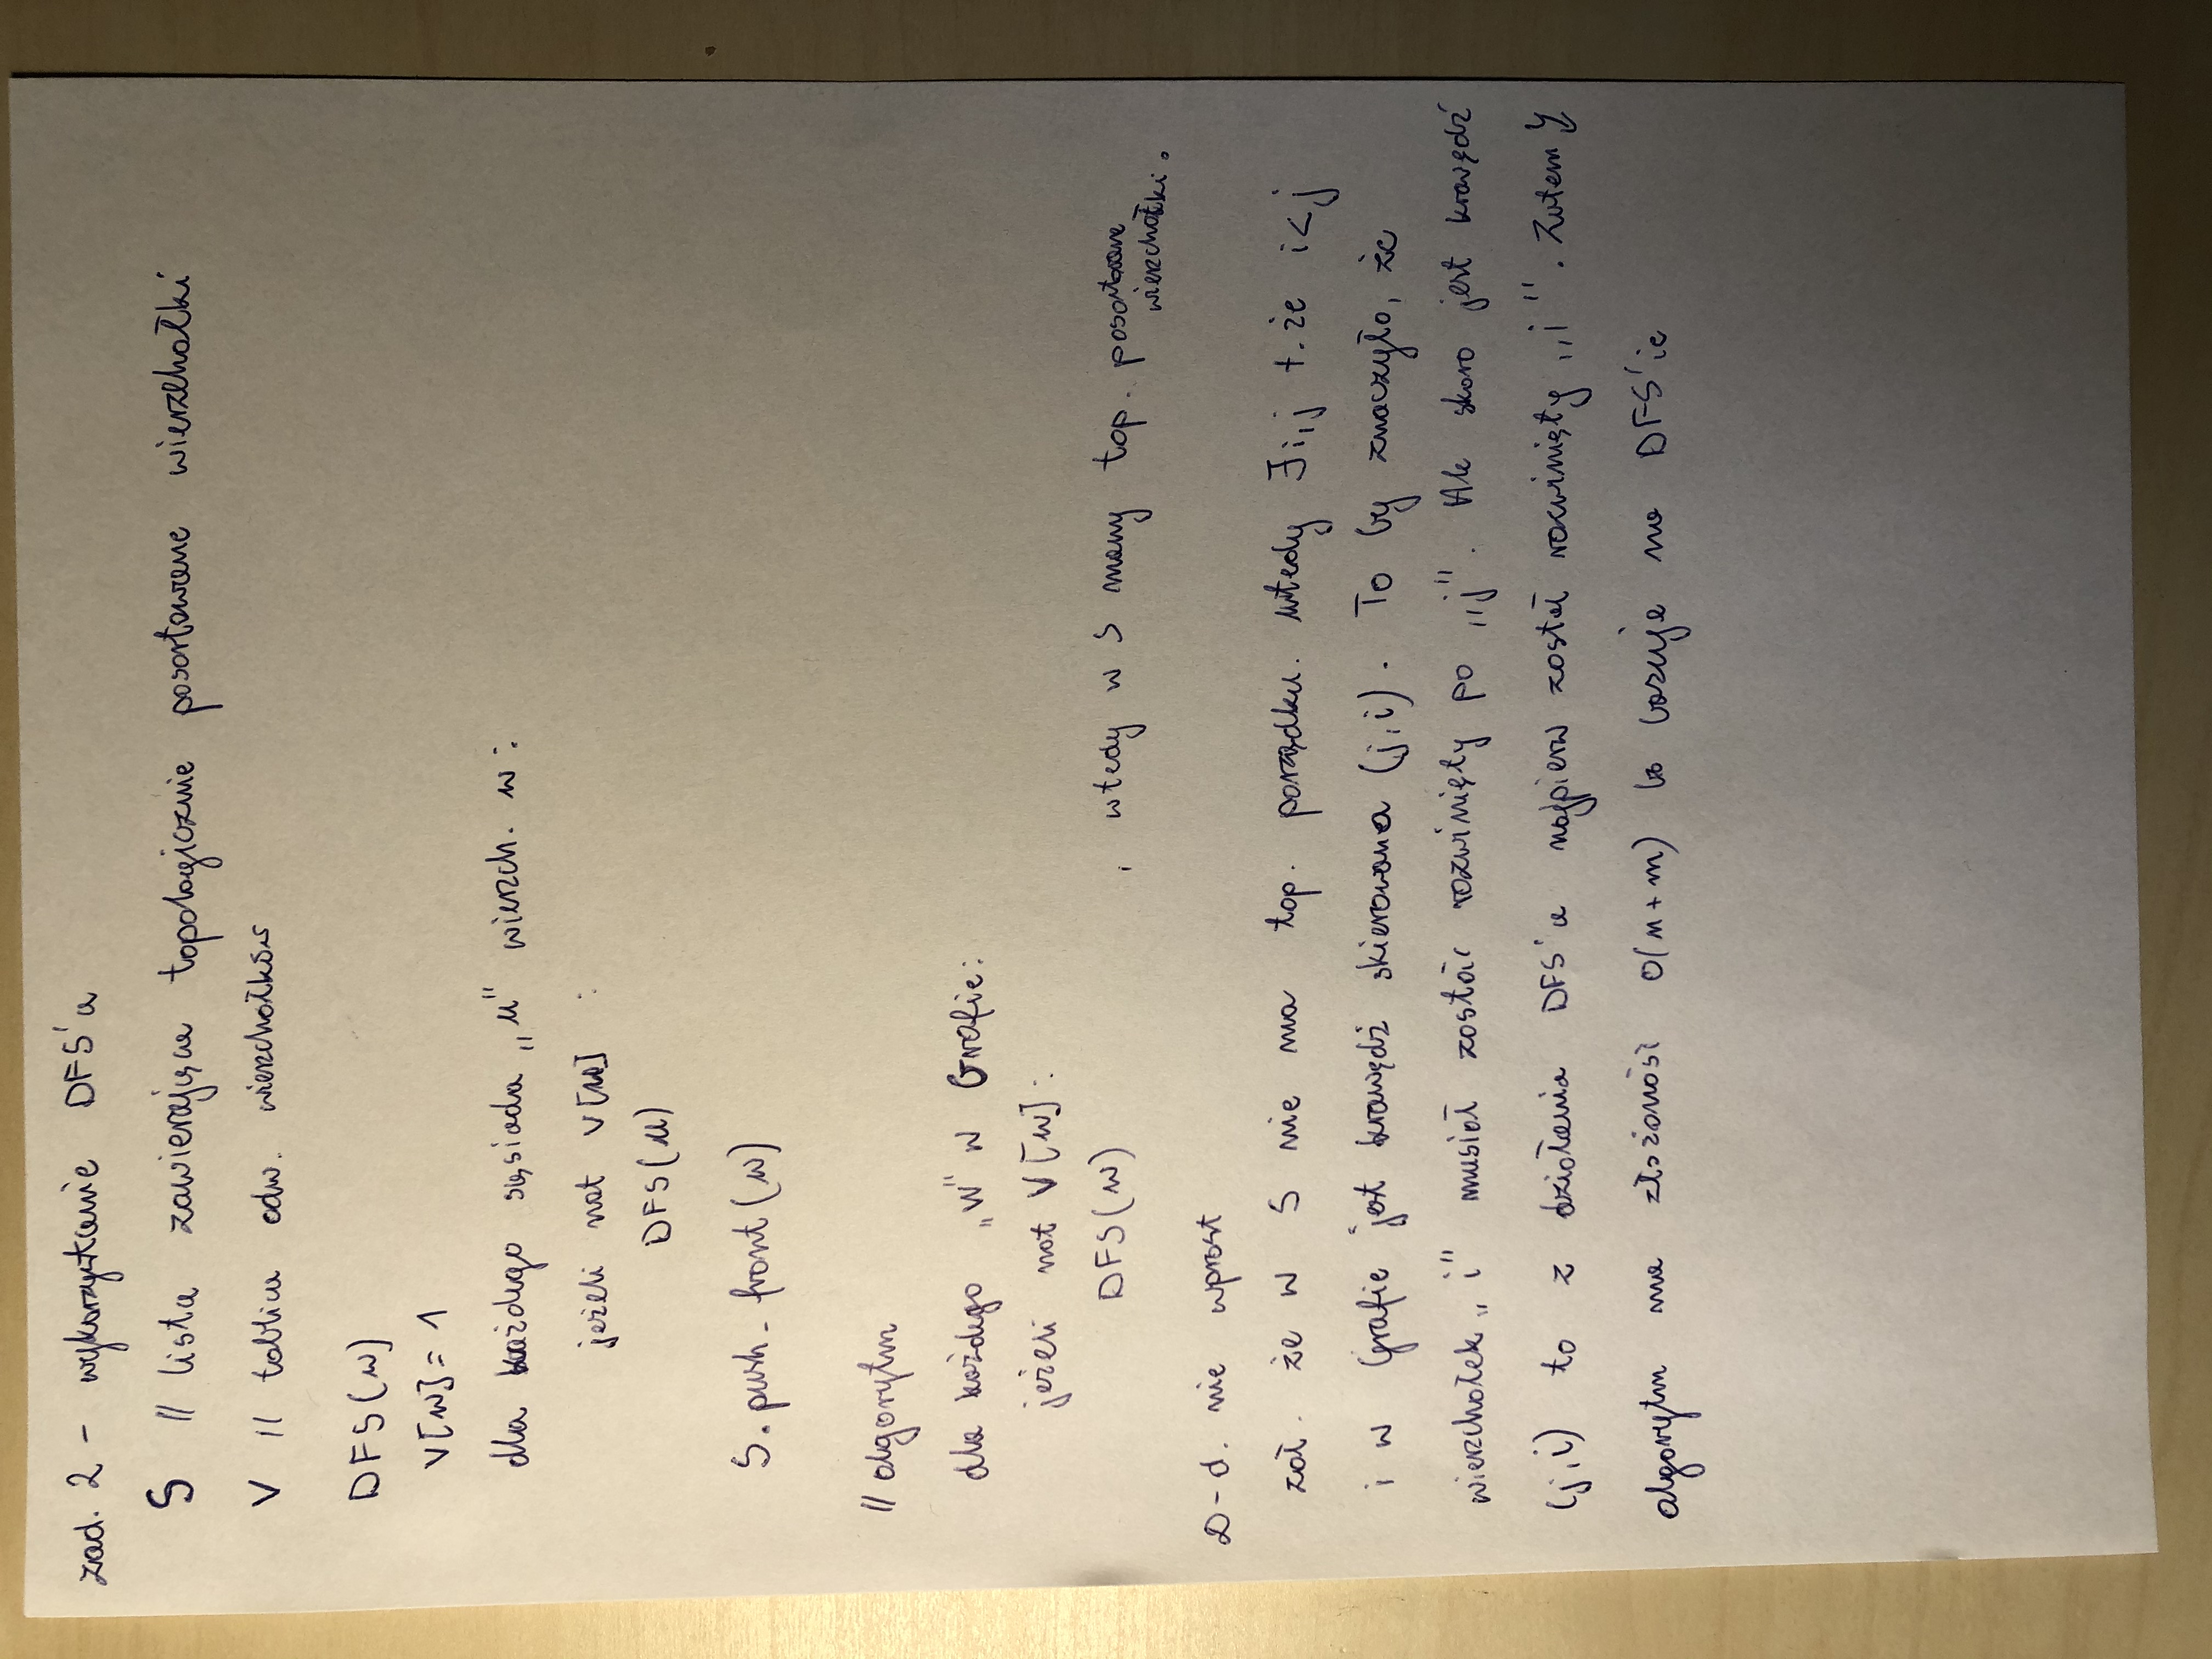 zad. 2 - wykorzystanie DFS'a
S // lista zawierająca topologicznie posortowane wierzchołki
V // tablica odw. wierzchołków
DFS(w)
V[w] = 1
dla każdego sąsiada „u" wierzch. w:
jeżeli not V[u] :
DFS(u)
S.push_front(w)
// algorytm
dla każdego „w" w Grafie:
jeżeli not V[w]:
DFS(w) , wtedy w S mamy top. posortowane
wierzchołki.
D-d. nie wprost
zał. że w S nie ma top. porządku. wtedy ∃i,j t.że i<j
i w Grafie jest krawędź skierowana (j,i). To by znaczyło, że
wierzchołek „i" musiał zostać rozwinięty po „j". Ale skoro jest krawędź
(j,i) to z działania DFS'a najpierw został rozwinięty „i". Zatem
algorytm ma złożoność O(n+m) bo bazuje na DFS'ie